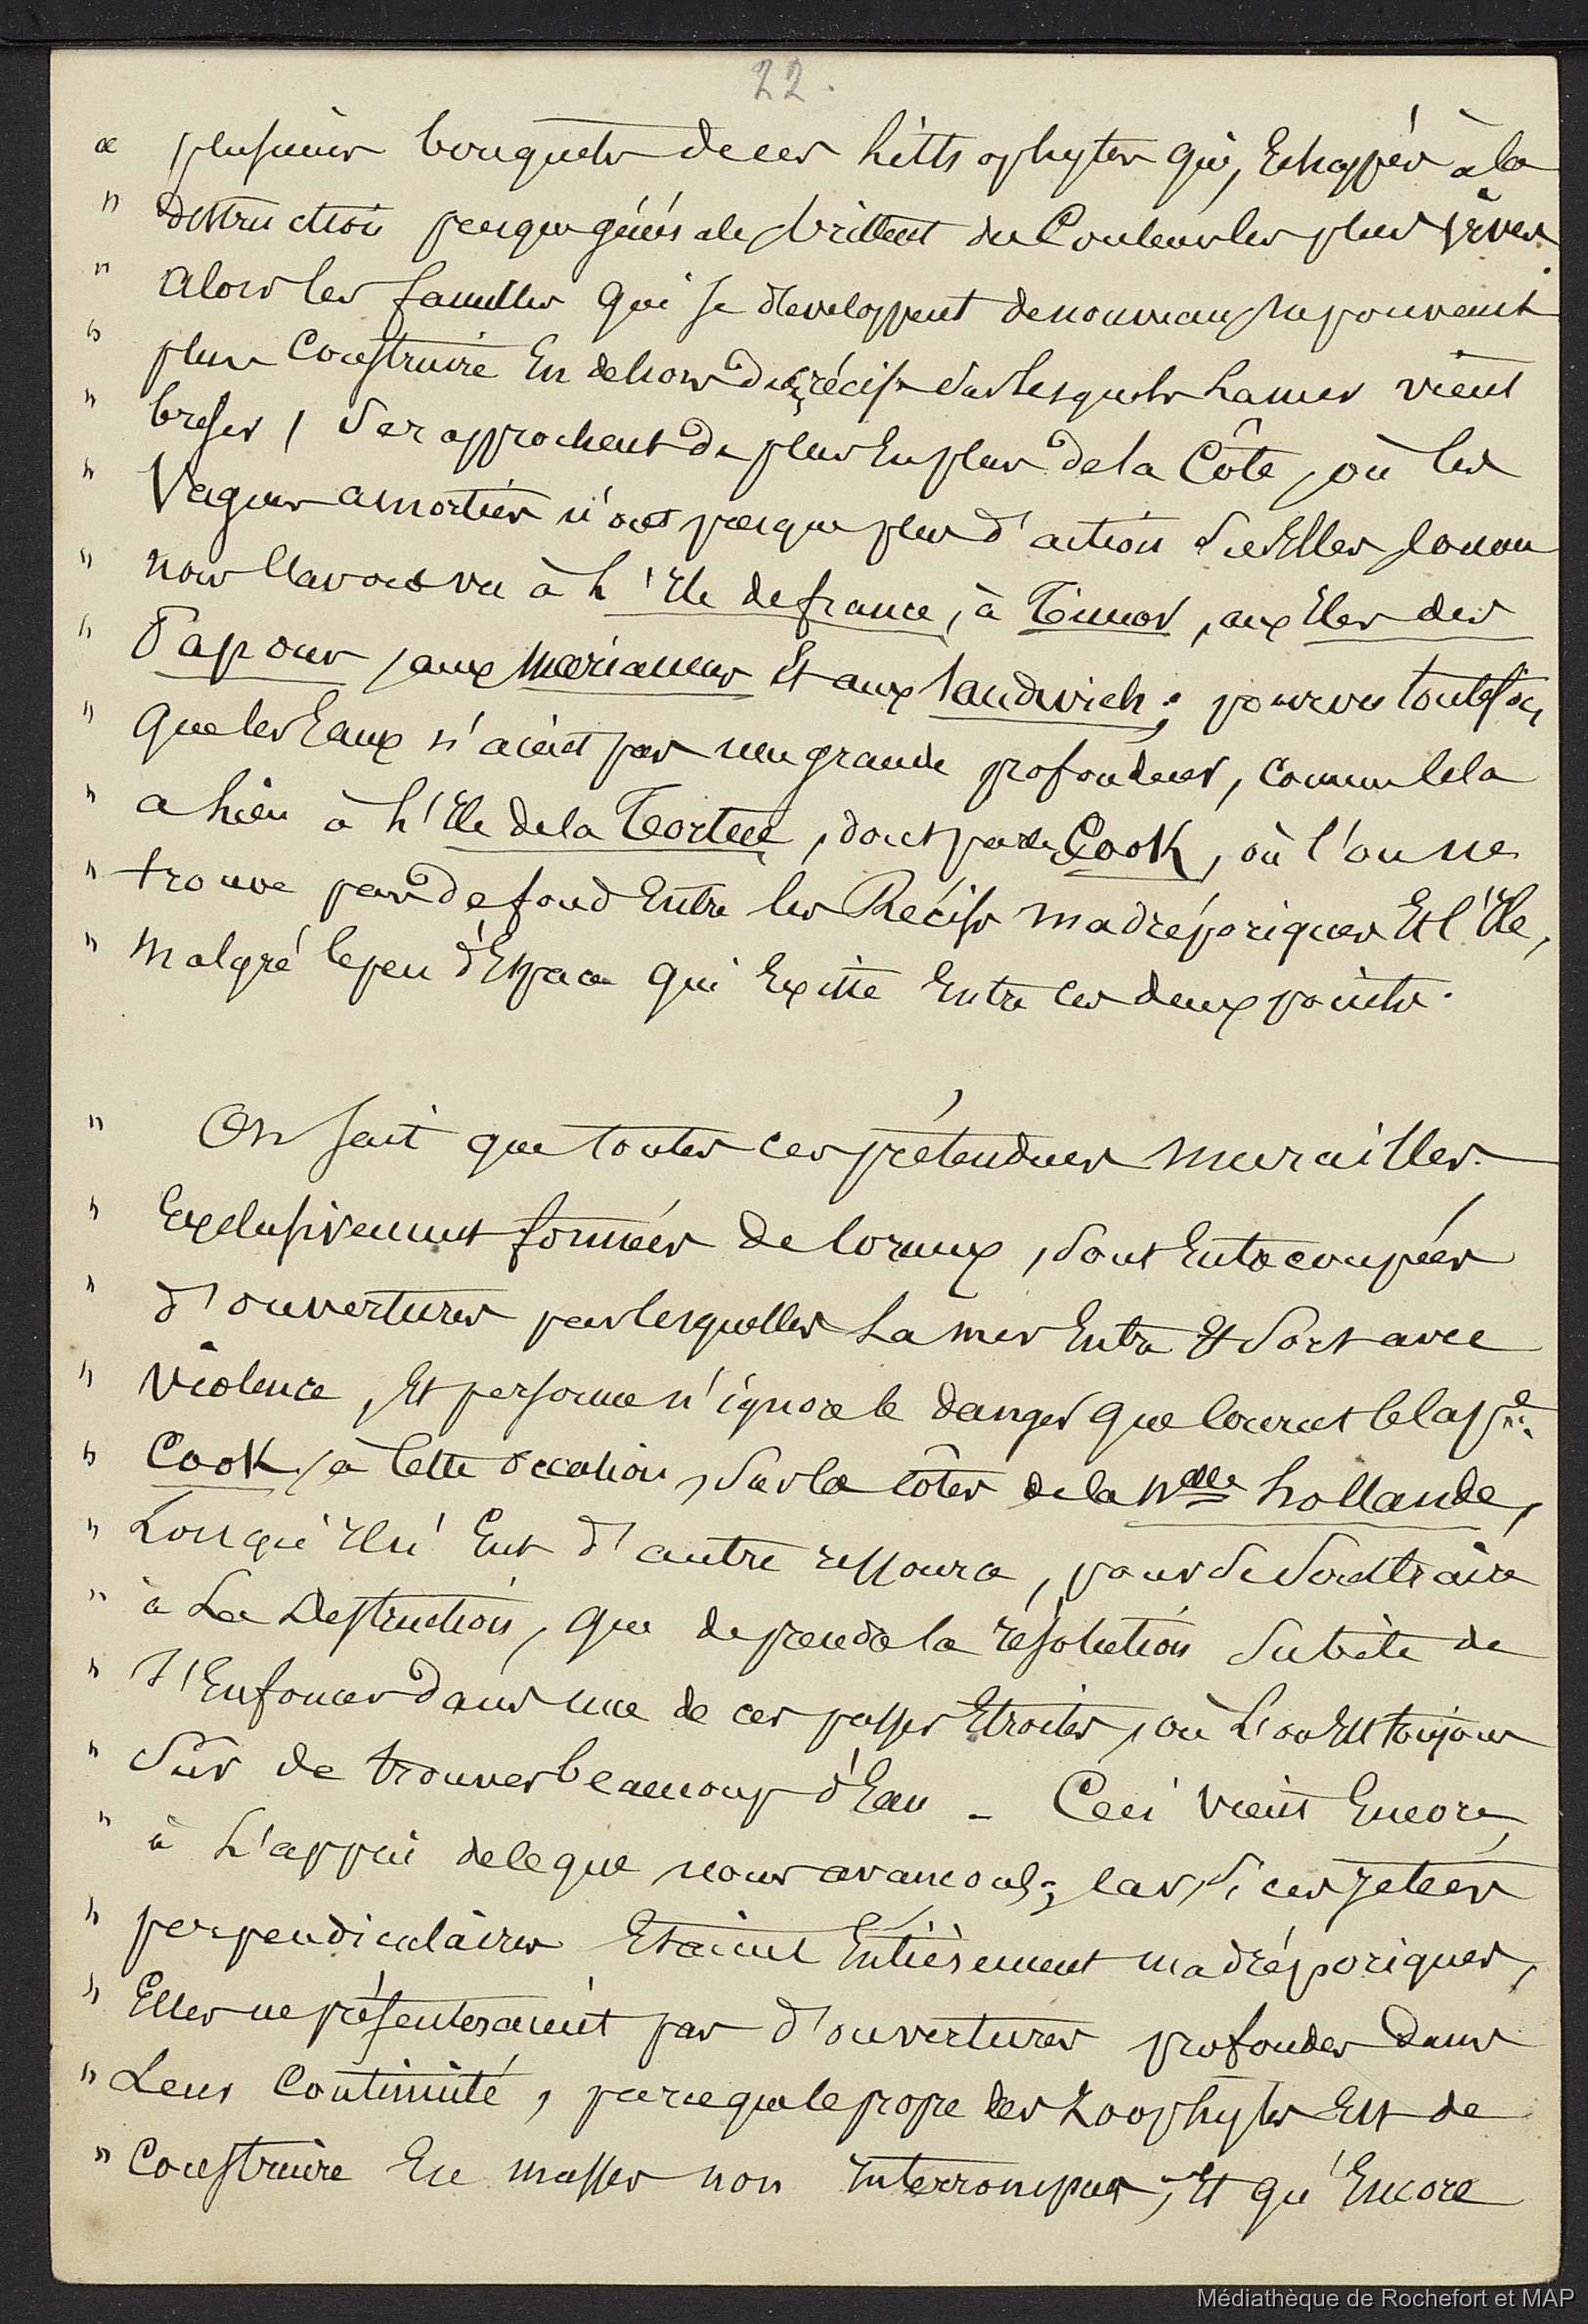 22.
« plusieurs bouquets de ces Litthophytes qui, Echappés à la
" destruction presque générale, brillent des Couleurs les plus vives.
" alors les familles qui se développent de nouveau, ne pouvant
" plus Construire En dehors des récifs sur lesquels La mer vient
" briser, se rapprochent de plus En plus de la Côte, où les
" Vagues amorties n'ont presque plus d'action sur Elles, comme
" nous l'avons vu à L'Ile de france, à Timor, aux Iles des
" Papous, aux mariannes Et aux Sandwich; pourvu toutefois,
" que les Eaux n'aient pas une grande profondeur, comme cela
" a lieu à L'Ile de la Tortue, dont parle Cook, où l'on ne
" trouve pas de fond Entre les Récifs madréporiques Et l'Ile,
" malgré le peu d'Espace qui Existe Entre ces deux points.
" On sait que toutes ces prétendues murailles
" Exclusivement formées de Coraux, sont Entrecoupées
" d'ouvertures par lesquelles La mer Entre Et Sort avec
" violence, Et personne n'ignore le danger que Courut le Cap.ne
" Cook, à Cette occasion, sur les côtes de la Nlle hollande,
" Lorsqu'Il n'Eut d'autre ressource, pour se Soustraire
" à La Destruction, que de prendre la résolution Subite de
" s'Enfoncer dans une de ces passes Etroites, où L'on Est toujours
" Sûr de trouver beaucoup d'Eau _ Ceci vient Encore
" à L'appui de Ce que nous avancons; Car, si ces jetées
" perpendiculaires Etaient Entièrement madréporiques,
" Elles ne présenteraient pas d'ouvertures profondes dans
" Leur Continuité, parceque le propre des Zoophytes Est de
" Construire En masses non Interrompues; Et qu'Encore
Médiathèque de Rochefort et MAP